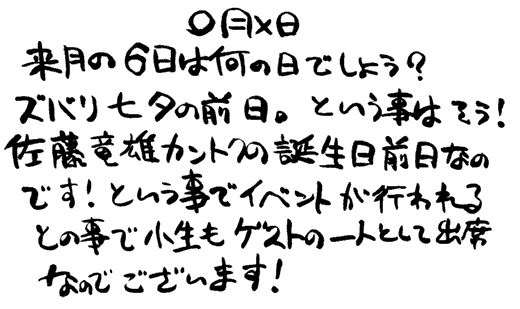 ○月×日
来月の6日は何の日でしょう?
ズバリ七夕の前日。という事はそう!
佐藤竜雄カントクの誕生日前日なの
です!という事でイベントが行われる
との事で小生もゲストの一人として出席
なのでございます!